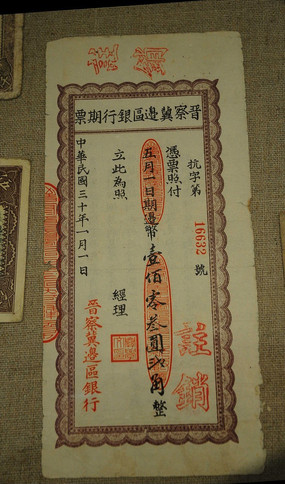 註銷
晉察冀邊區銀行期票
抗字第 16632 號
憑票照付
五月一日期邊幣壹佰零叁圓貳角整
立此為照
經理
中華民國三十年一月一日
晉察冀邊區銀行
註銷